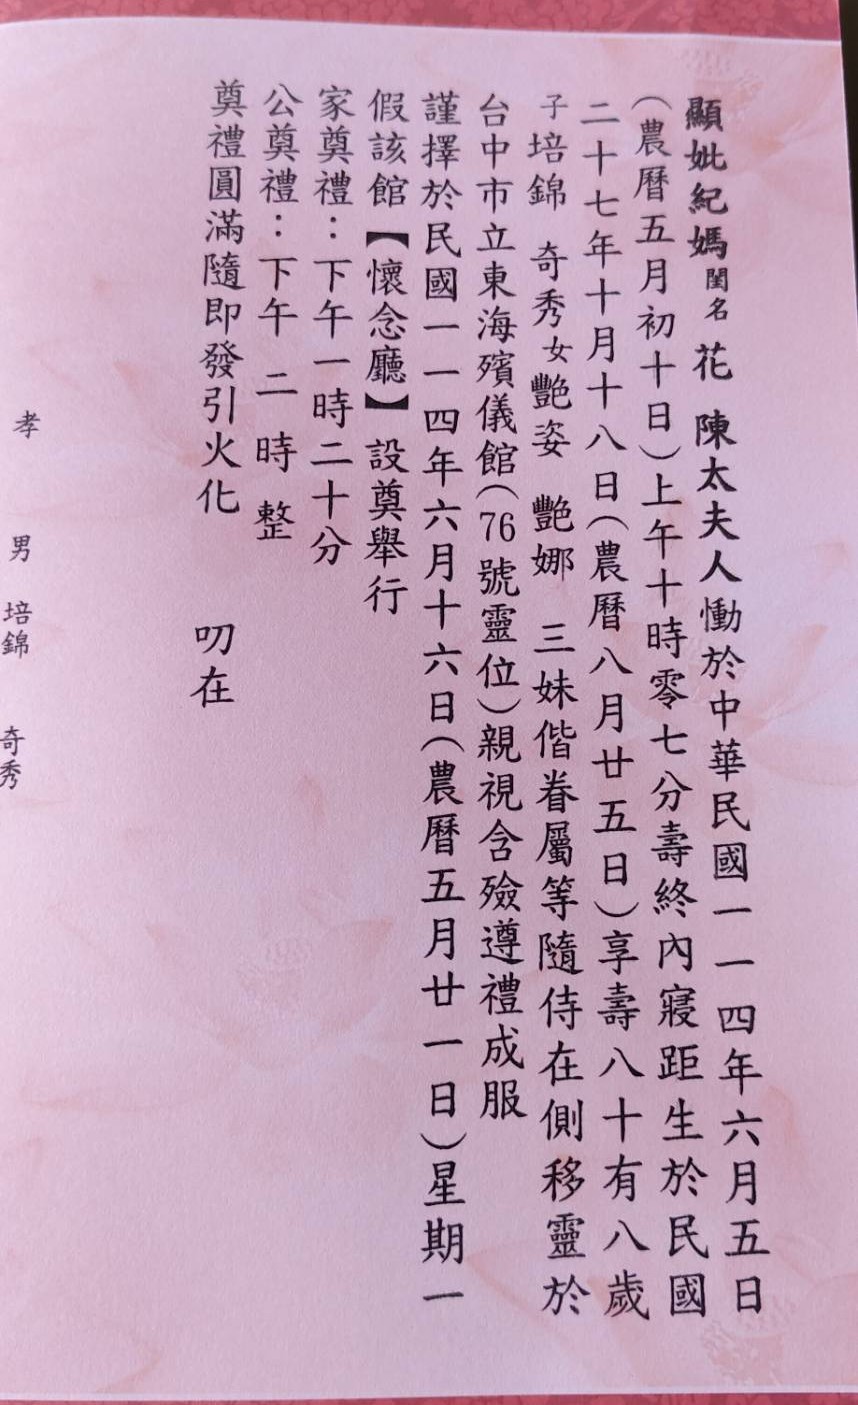 顯妣紀媽閨名花 陳太夫人慟於中華民國一一四年六月五日
(農曆五月初十日)上午十時零七分壽終內寢距生於民國
二十七年十月十八日(農曆八月廿五日)享壽八十有八歲
子培錦 奇秀女艷姿 艷娜 三妹偕眷屬等隨侍在側移靈於
台中市立東海殯儀館(76號靈位)親視含殮遵禮成服
謹擇於民國一一四年六月十六日(農曆五月廿一日)星期一
假該館【懷念廳】設奠舉行
家奠禮:下午一時二十分
公奠禮:下午 二 時 整
奠禮圓滿隨即發引火化
叨在
孝 男 培錦 奇秀